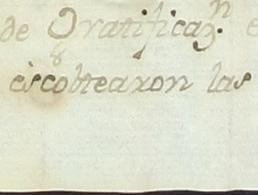 de Gratificaz.n e
escobtearon las